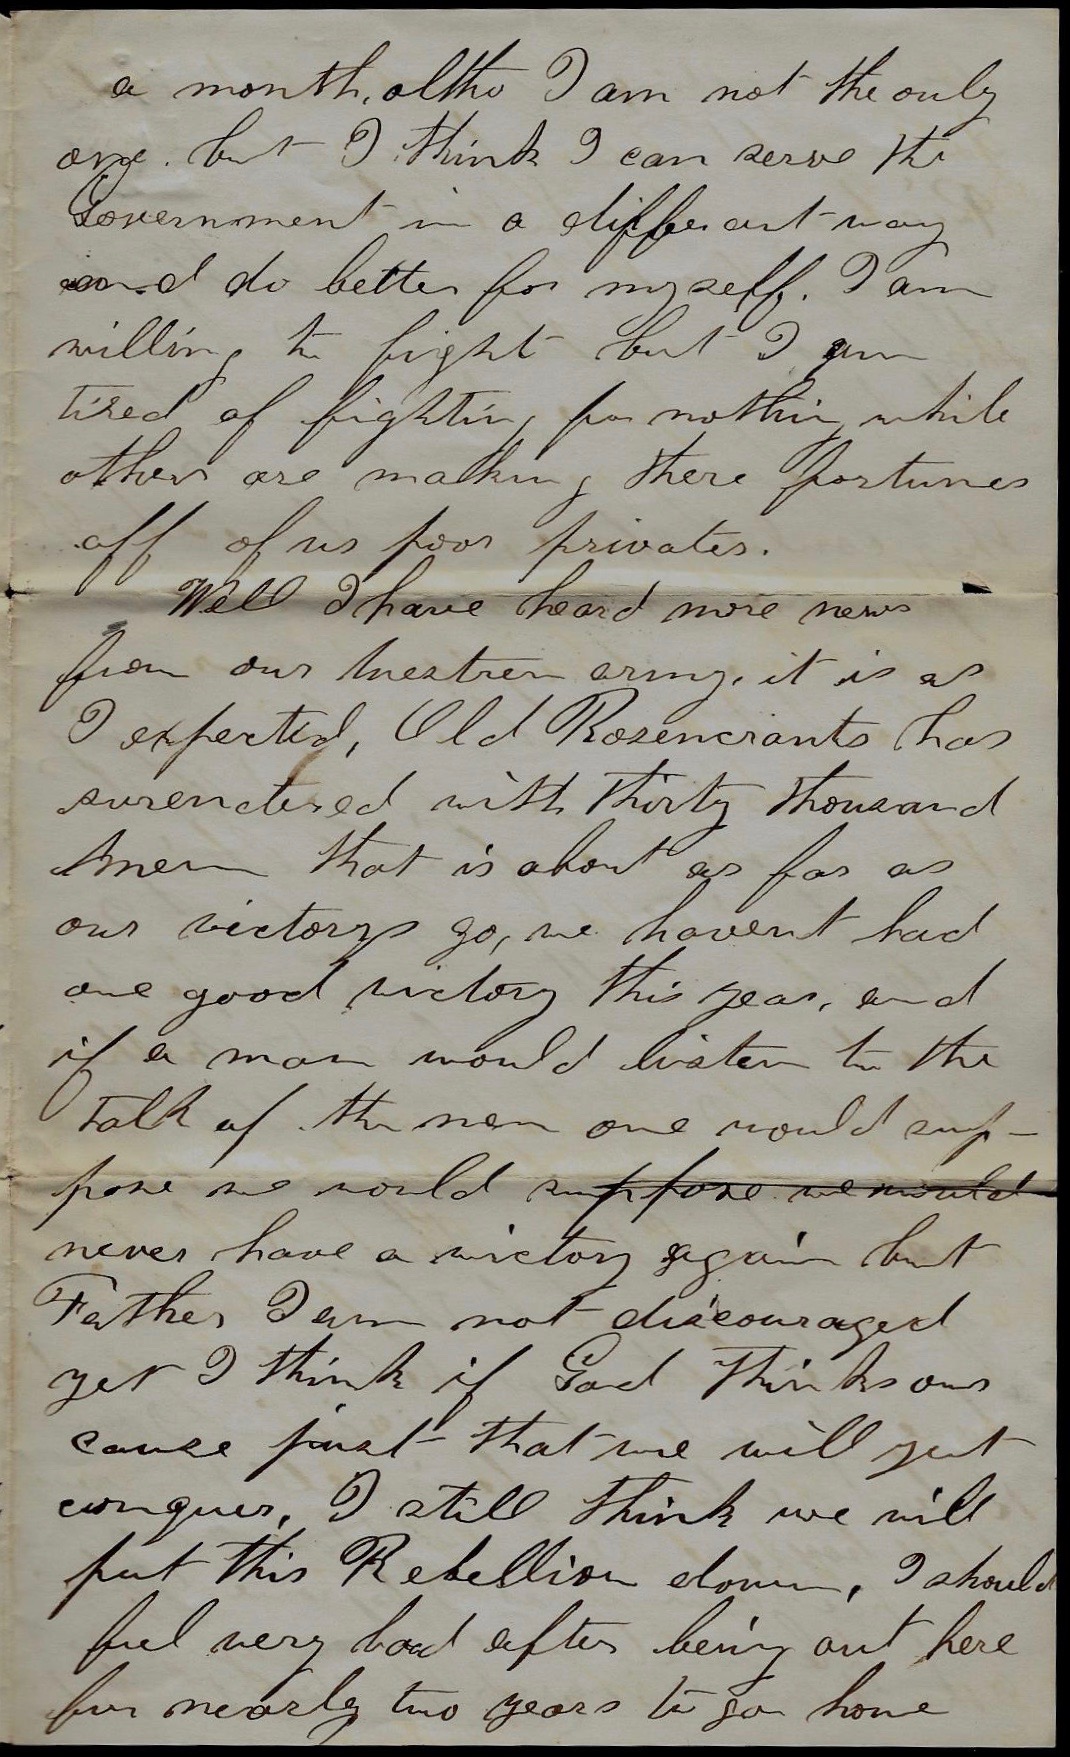 a month, altho I am not the only
one. but I think I can serve the
Government in a differant way
and do better for myself. I am
willing to fight but I am
tired of fighting for nothing while
others are making there fortunes
off of us poor privates.
Well I have heard more news
from our Westren army, it is as
I expected, Old Rosencrants has
surendered with thirty thousand
men that is about as far as
our victorys go, we havent had
one good victory this year, and
if a man would listen to the
talk of the men one would sup-
pose we would suppose we would
never have a victory again but
Father I am not discouraged
yet I think if God thinks our
cause just that we will yet
conquer, I still think we will
put this Rebellion down, I should
feel very bad after being out here
for nearly two years to go home